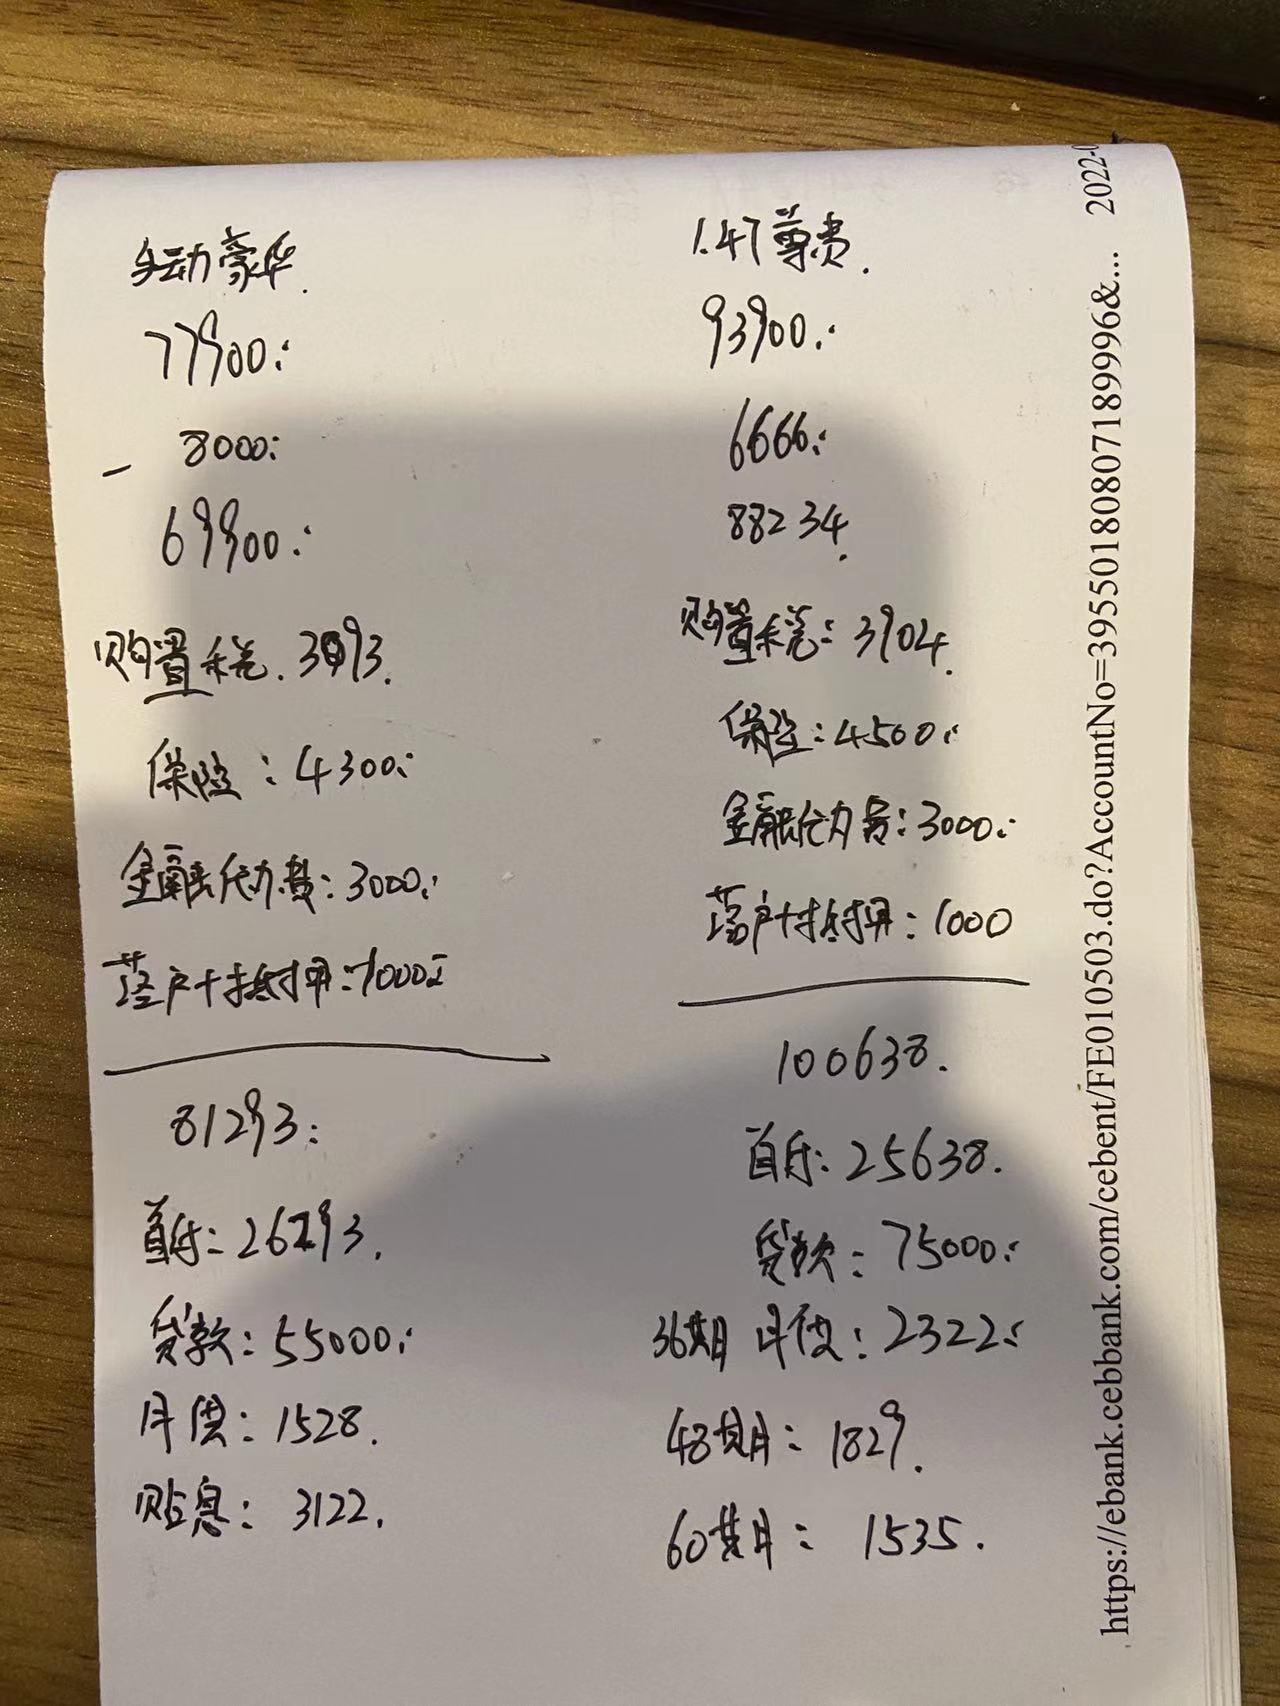 自动豪华.
77900.
- 8000.
69900.
购置税.3093.
保险:4300.
金融代办费:3000.
落户+抵押:1000
81293.
首付:26293.
贷款:55000.
月供:1528.
贴息:3122.
1.4T尊贵.
93900.
6666.
88234.
购置税:3904.
保险:4500.
金融代办费:3000.
落户+抵押:1000
100638.
首付:25638.
贷款:75000.
36期 月供:2322.
48期:1829.
60期:1535.
https://ebank.cebbank.com/cebent/FE010503.do?AccountNo=39550180807189996&... 2022-0